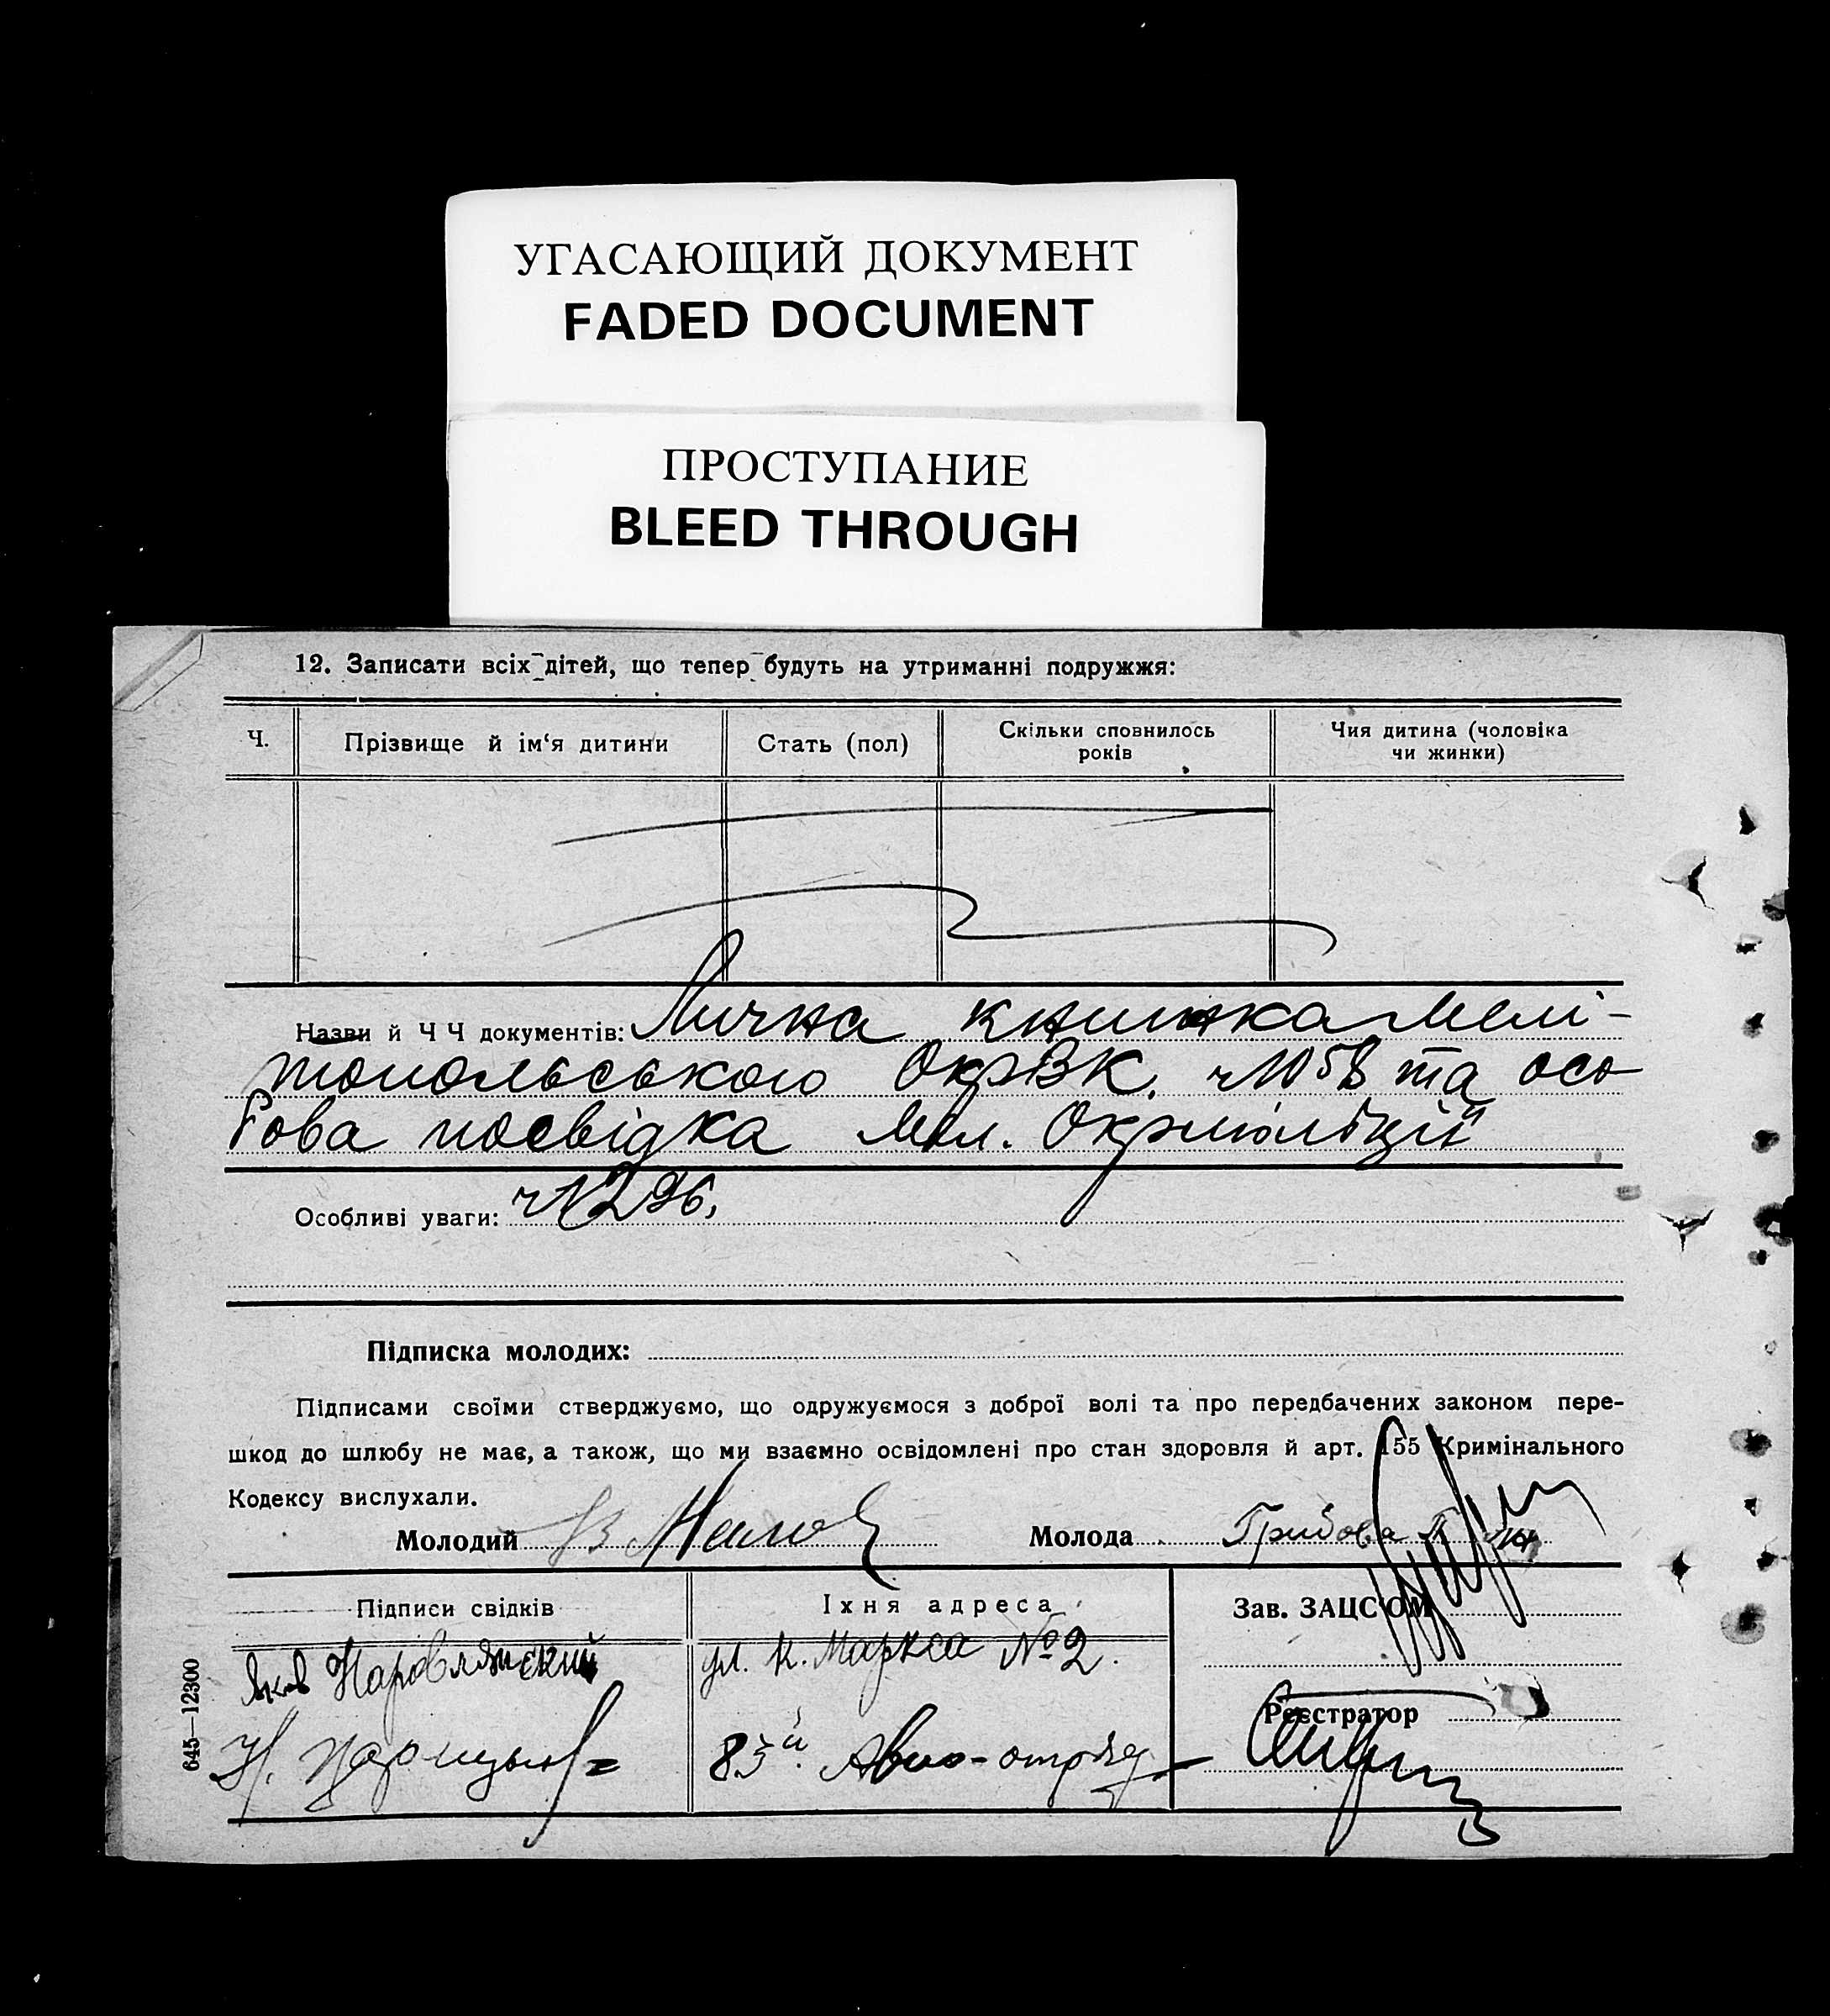 УГАСАЮЩИЙ ДОКУМЕНТ
FADED DOCUMENT
ПРОСТУПАНИЕ
BLEED THROUGH
12. Записати всіх дітей, що тепер будуть на утриманні подружжя:
Ч.
Прізвище й ім‘я дитини
Стать (пол)
Скільки сповнилось
років
Чия дитина (чоловіка
чи жинки)
Назви й Ч Ч документів: Лична книжка Мелі-
топольського ОкрВК. та осо
бова посвідка Мел. Окрміліції
Особливі уваги: ч 1296.
Підписка молодих:
Підписами своїми стверджуємо, що одружуємося з доброї волі та про передбачених законом пере-
шкод до шлюбу не має, а також, що ми взаємно освідомлені про стан здоровля й арт. 155 Кримінального
Кодексу вислухали.
Молодий
Молода Грибова
Підписи свідків
Їхня адреса
Зав. ЗАЦС‘ОМ
Яков Наровлянский
ул. К. Маркса № 2.
Реєстратор
Н.
83й. Авио-отряд
645—12300